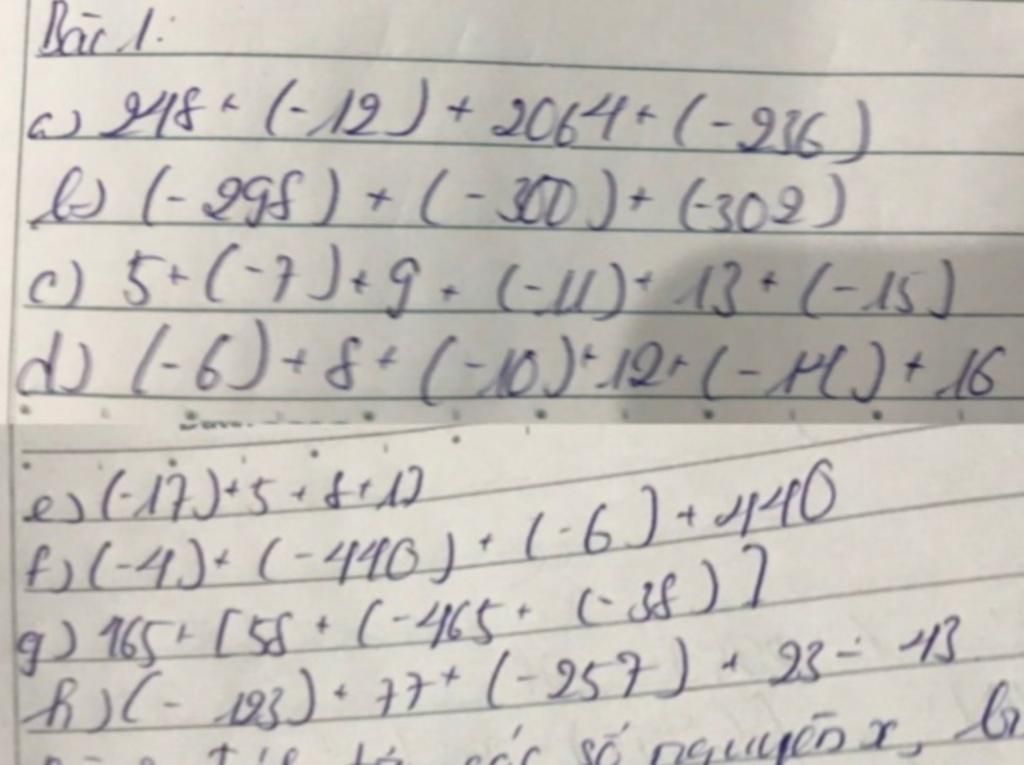 Bài 1:
a) 248 + (-12) + 2064 + (-236)
b) (-298) + (-300) + (-302)
c) 5 + (-7) + 9 + (-11) + 13 + (-15)
d) (-6) + 8 + (-10) + 12 + (-14) + 16
e) (-17) + 5 + 8 + 17
f) (-4) + (-440) + (-6) + 440
g) 465 + [58 + (-465 + (-38)]
h) (-123) + 77 + (-257) + 23 - 43
số nguyên x,